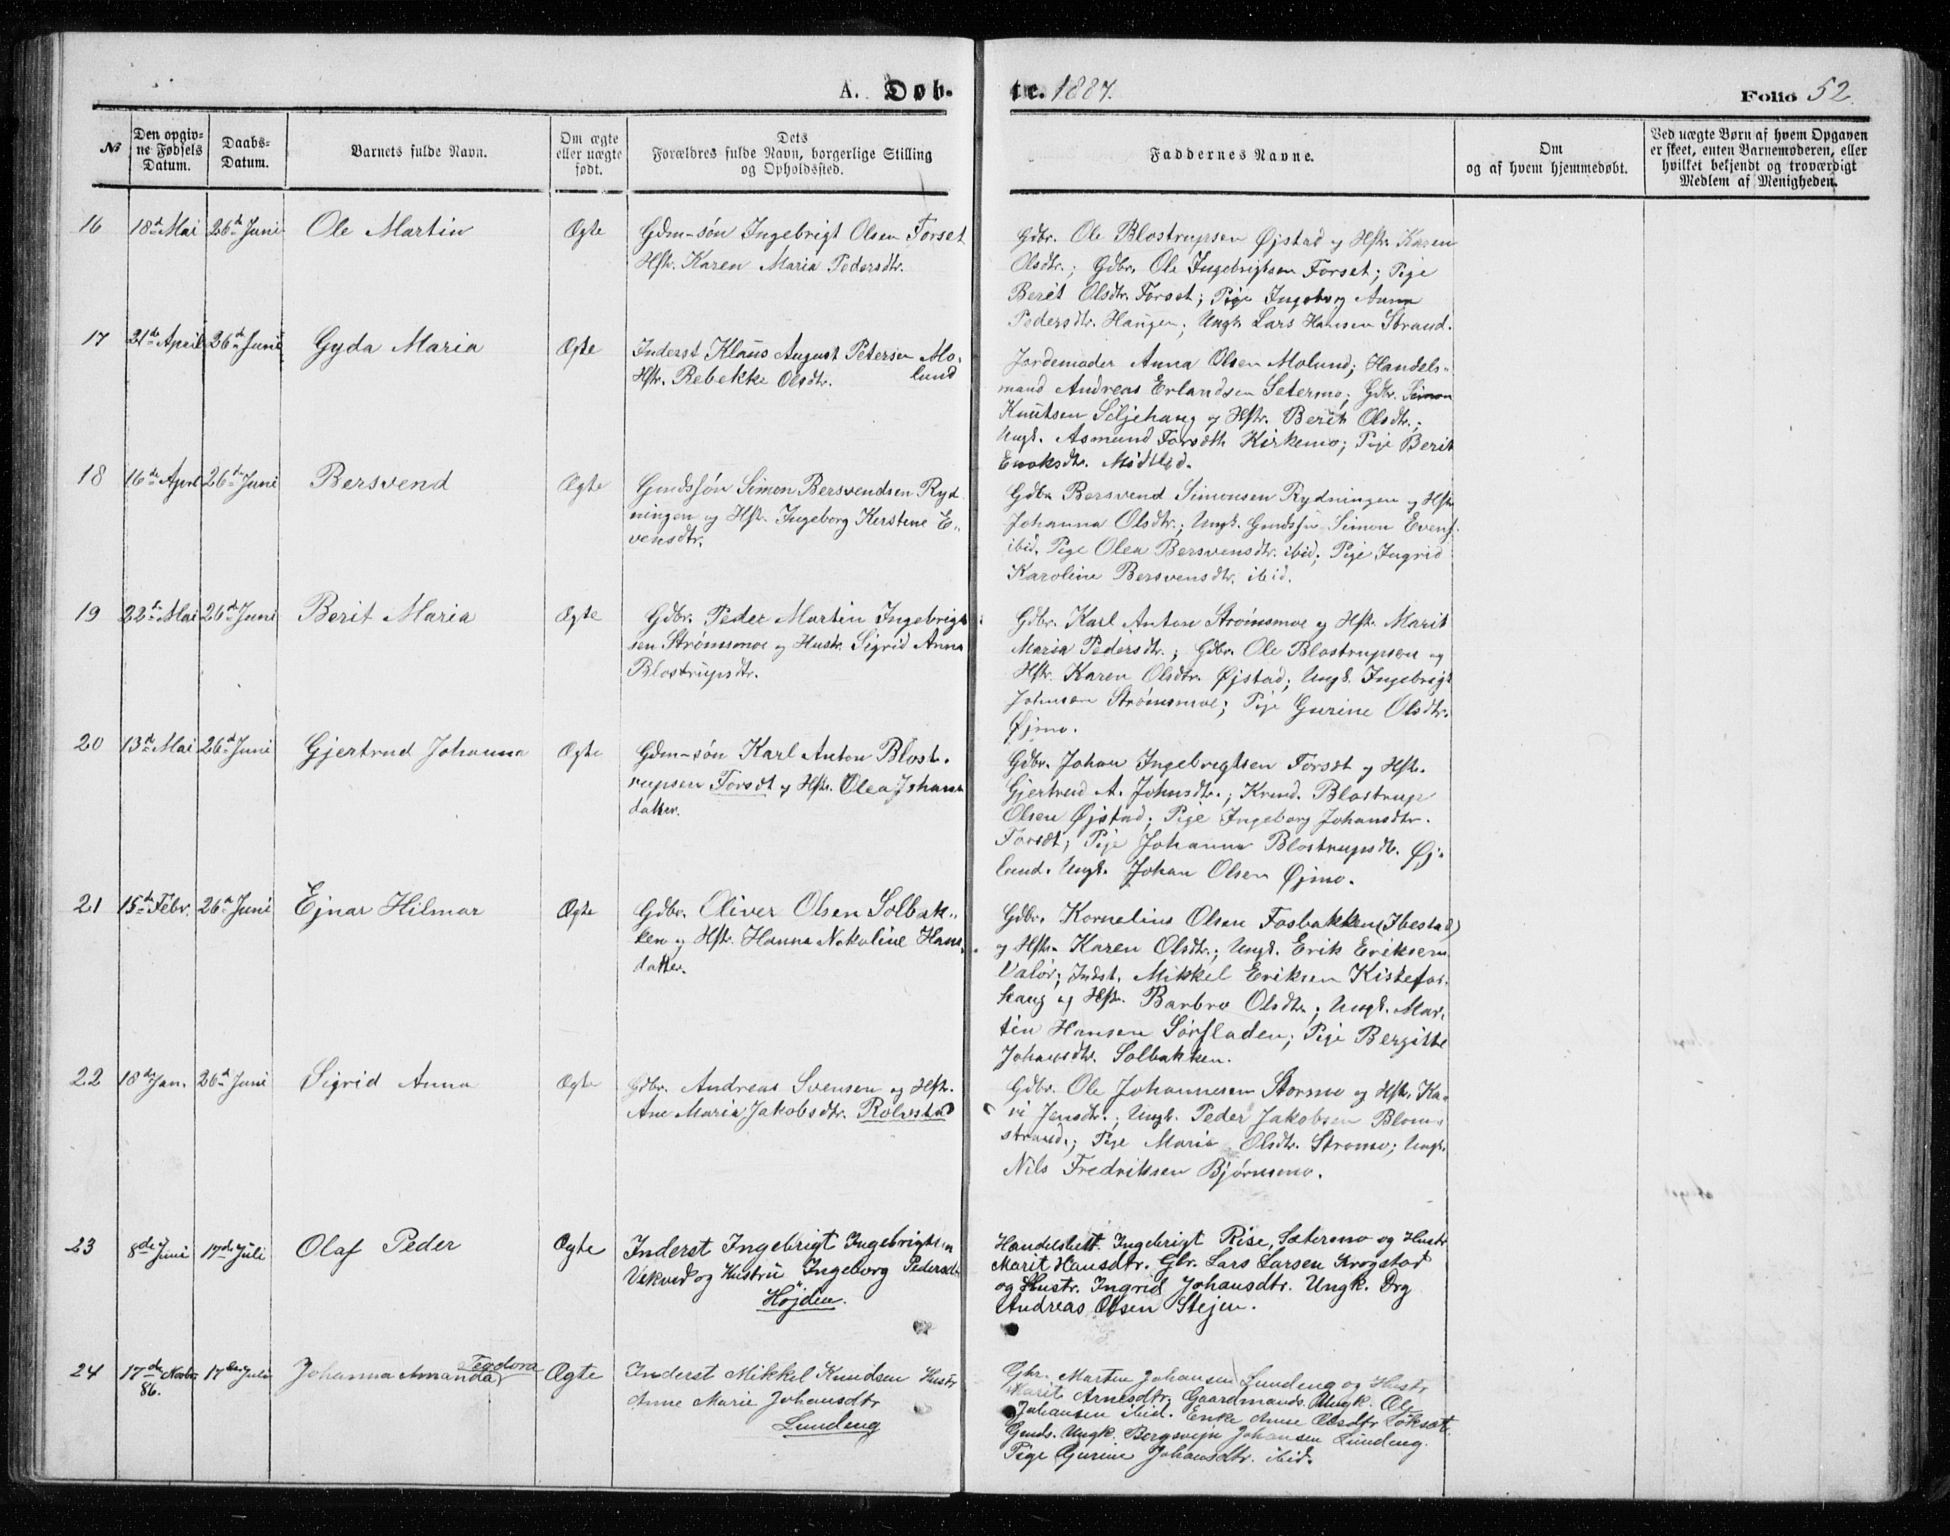 A. Døb-
te. 1887.
Folio 52.
No
Den opgiv-
ne Fødsels
Datum.
Daabs-
Datum.
Barnets fulde Navn.
Om ægte
eller uægte
født.
Dets
Forældres fulde Navn, borgerlige Stilling
og Opholdssted.
Faddernes Navne.
Om
og af hvem hjemmedøbt.
Ved uægte Børn af hvem Opgaven
er skeet, enten Barnemoderen, eller
hvilket bekjendt og troværdigt
Medlem af Menigheden.
16 18de Mai 26de Juni Ole Martin Ægte
Gdm-søn Ingebrigt Olsen Forset
Hstr. Karen Maria Pedersdtr.
Gdbr. Ole Blostrupsen Øjstad og Hstr. Karen
Olsdtr.; Gdbr. Ole Ingebrigtsen Forset; Pige
Berit Olsdtr. Forset; Pige Ingeborg Anna
Pedersdtr. Haugen; Ungk. Lars Hansen Strand.
17 21de April 26de Juni Gyda Maria Ægte
Inderst Klaus August Petersen Mo-
lund
Hstr. Rebekke Olsdtr.
Jordemoder Anna Olsen Molund; Handels-
mand Andreas Erlandsen Setermo; Gdbr. Simon
Knutsen Siljehaug og Hstr. Berit Olsdtr.;
Ungk. Asmund Forseth Kirkemo; Pige Berit
Enoksdtr. Mødtlid.
18 16de April 26de Juni Bersvend Ægte
Gmdssøn Simon Bersvendsen Ryd-
ningen og Hstr. Ingeborg Kerstine E-
vensdtr.
Gdbr. Bersvend Simonsen Rydningen og Hstr.
Johanna Olsdtr.; Ungk. Gmdssøn Simon Evens.
ibid. Pige Olea Bersvensdtr. ibid; Pige Ingrid
Karoline Bersvensdtr. ibid.
19 22de Mai 26de Juni Berit Maria Ægte
Gdbr. Peder Martin Ingebrigt-
sen Strømsmoe og Hustr. Sigrid Anna
Blostrupsdtr.
Gdbr. Karl Anton Strømsmoe og Hstr. Marit
Maria Pedersdtr.; Gdbr. Ole Blostrupsen og
Hstr. Karen Olsdtr. Øjstad; Ungk. Ingebrigt
Johnsen Strømsmoe; Pige Gurine Olsdtr.
Øjmo.
20 13de Mai 26de Juni Gjertrud Johanna Ægte
Gdm-søn Karl Anton Blost-
rupsen Forsdt og Hstr. Olea Johans
datter.
Gdbr. Johan Ingebregtsen Forsdt og Hstr.
Gjertrud A. Johnsdtr.; Krmd. Blostrup
Olsen Øjstad; Pige Ingeborg Johansdtr.
Forsdt; Pige Johanna Blostrupsdtr. Øj-
lund. Ungk. Johan Olsen Øjmo.
21 15de Febr. 26de Juni Ejnar Hilmar Ægte
Gdbr. Oliver Olsen Solbak-
ken og Hstr. Hanna Nekoline Hans-
datter.
Gdbr. Kornelius Olsen Fosbakken (Ibestad)
og Hstr. Karen Olsdtr.; Ungk. Erik Eriksen
Valør; Indst. Mikkel Eriksen Kistefos-
haug og Hstr. Barbro Olsdtr.; Ungk. Mar-
tin Hansen Sørfladen; Pige Bergitte
Johansdtr. Solbakken.
22 18de Jan. 26de Juni Sigrid Anna Ægte
Gdbr. Andreas Svensen og Hstr.
Ane Maria Jakobsdtr. Rolvstad
Gdbr. Ole Johannesen Stormo og Hstr. Ka-
ri Jensdtr.; Ungk. Peder Jakobsen Blom-
strand.; Pige Maria Olsdtr. Stromo; Ungk.
Nils Fredriksen Bjørnsmo.
23 8de Juni 17de Juli Olaf Peder Ægte
Inderst Ingebrigt Ingebrigtsen
Vekved og Hustru Ingeborg Pedersdtr
Højden.
Handelsbett. Ingebrigt Rise, Sætermo og Hustr
Marit Hansdtr. Gbr. Lars Larsen Krogstad
og Hustr. Ingrid Johansdtr. Ungk. Drg
Andreas Olsen Stejen.
24 17de Novbr 86. 17de Juli Johanna Amanda Teodora Ægte
Inderst Mikkel Knudsen Hustr
Anne Marie Johansdtr
Lundeng
Gbr. Morten Johansen Lundeng og Hustr
Marit Arnesdtr. Gaardmands. Ungk. Ole
Johansen ibid. Enke Anne Olsdtr Løksæt.
Gmds. Ungk. Bergsvejn Johansen Lundeng.
Pige Gurine Johansdtr. ibid.